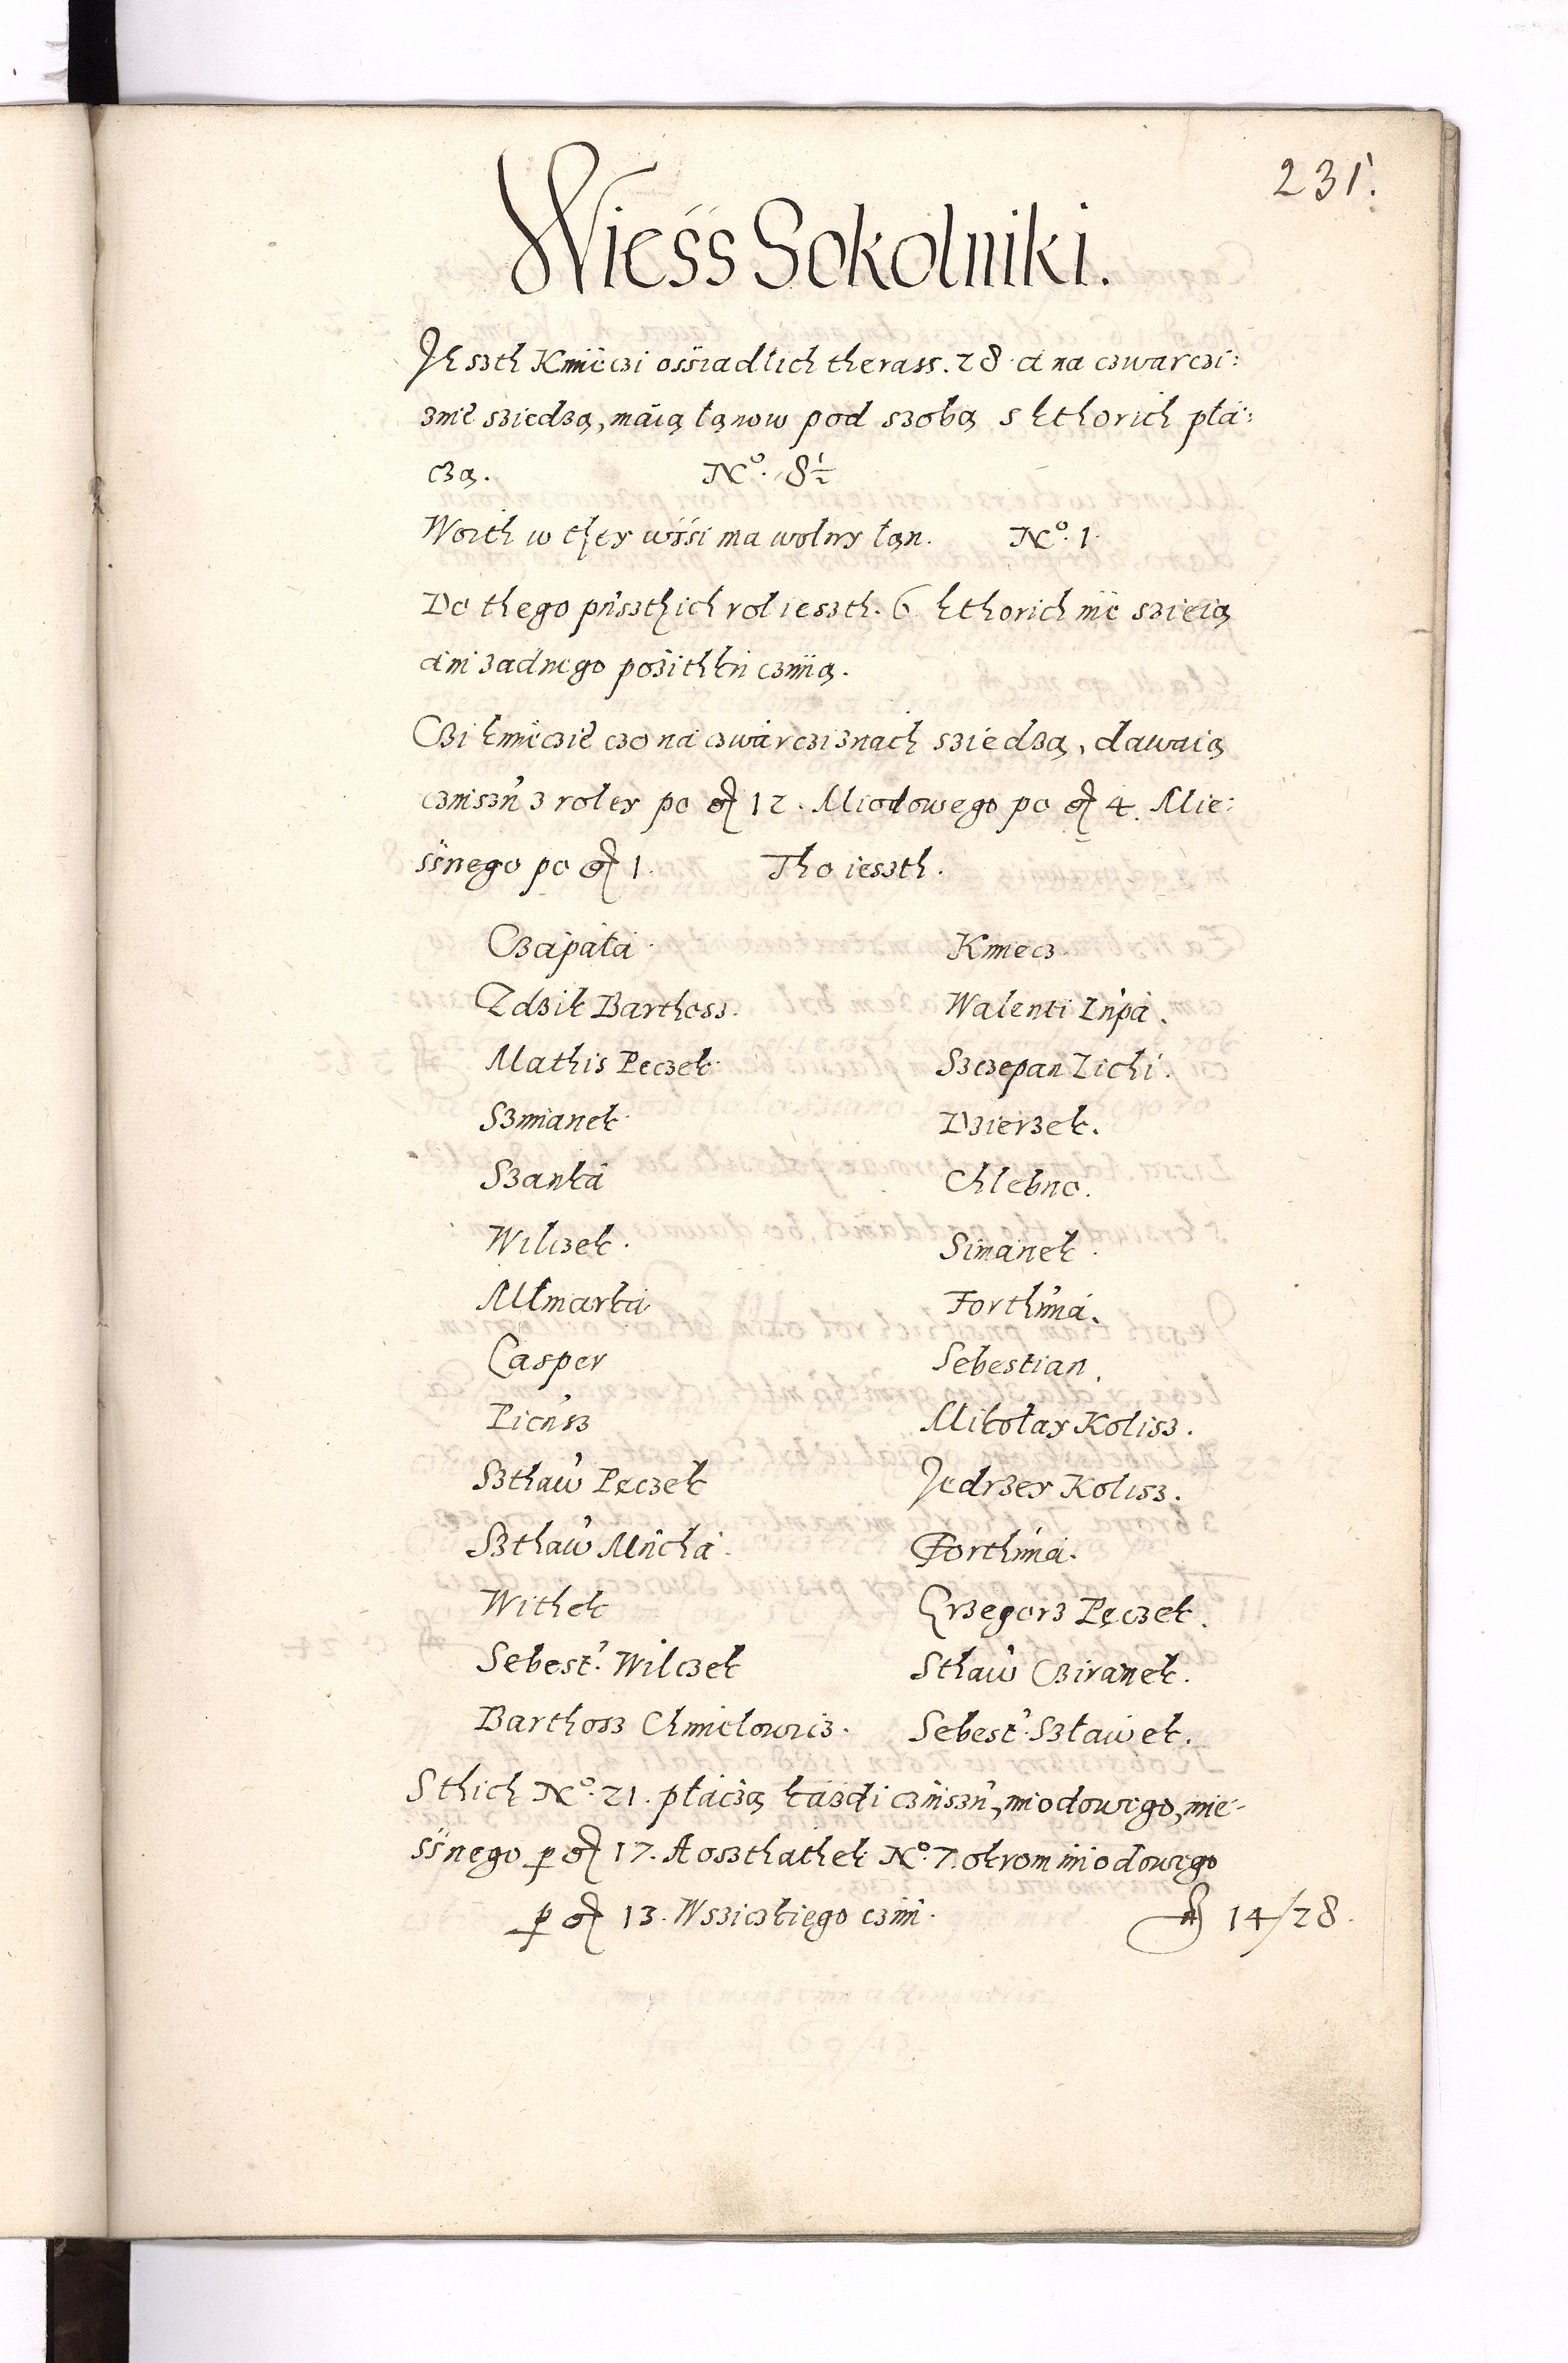 231.
Wieśś Sokolniki.
Jeszth Kmieczi ossiadlich therass. 28 a na czwarczi:
znie sziedzą, maią łąnow pod szobą s kthorich płá:
czą. No. 8½
Woith w they wśśi ma wolny łąn. No. 1.
Do thego pusztych rol ieszth. 6 kthorich nie szieią
ani żadnego pożithku cznią.
Czi kmieczie czo na czwarcziznach sziedzą, dawaią
czinszu z roley po gr 12. Miodowego po gr 4. Mie:
śśnego po gr 1. Tho ieszth.
Czapała. Kmiecz.
Zdzik Barthoss. Walenti Zupa.
Mathis Pęczek. Szczepan Lichi.
Szmianek. Dzierzek.
Szanka Chlebno.
Wilczek. Simanek.
Ułmarka Forthuna.
Casper Sebestian.
Picusz Mikołay Kolisz.
Szthaw Pęczek Jedrzey Kolisz.
Szthaw Mucha. Forthuna.
Withek Grzegorz Pęczek.
Sebest. Wilczek Sthaw Cziranek.
Barthosz Chmielowicz. Sebest. Szławek.
S thich No. 21. płaczą każdi czinszu, miodowego, mie-
śśnego p gr 17. A oszthathek No. 7. okrom miodowego
p gr 13. Wszickiego czini. fl 14/28.